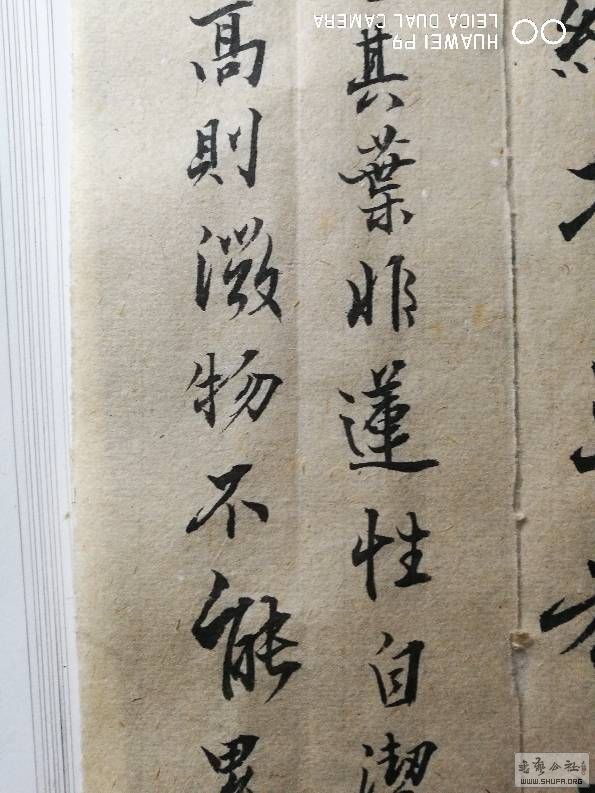 其葉非蓮性自潔
高則微物不能累
HUAWEI P9
LEICA DUAL CAMERA
WWW.SHUFA.ORG